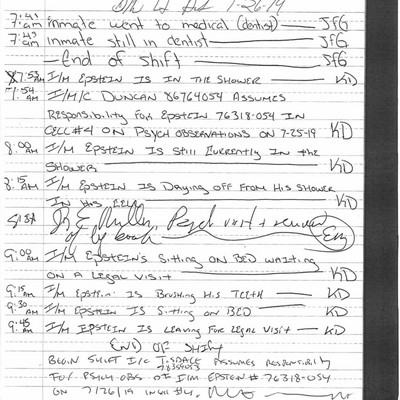 7-26-19
7:41 am inmate went to medical (dentist) JfG
7:43 am inmate still in dentist JfG
End of shift JfG
7:53 am I/M EPSTEIN IS IN THE SHOWER KD
7:54 am I/M/C DUNCAN 86764054 ASSUMES
RESPONSIBILITY FOR EPSTEIN 76318-054 IN
CELL#4 ON PSYCH OBSERVATIONS ON 7-25-19 KD
8:00 am I/M EPSTEIN IS STILL CURRENTLY IN the
SHOWER KD
8:15 am I/M EPSTEIN IS DRYING OFF FROM HIS SHOWER
IN HIS CELL KD
Psych visit + review
of log book
9:00 am I/M EPSTEIN'S SITTING ON BED WAITING
ON A LEGAL VISIT KD
9:15 am I/M EPSTEIN IS BRUSHING HIS TEETH KD
9:30 am I/M EPSTEIN IS SITTING ON BED KD
9:45 am I/M EPSTEIN IS LEAVING FOR LEGAL VISIT KD
END OF SHIFT
BEGIN SHIFT I/C ASSUMES RESPONSIBILITY
FOR PSYCH OBS OF I/M EPSTEIN # 76318-054
ON 7/26/19 IN CELL #4.